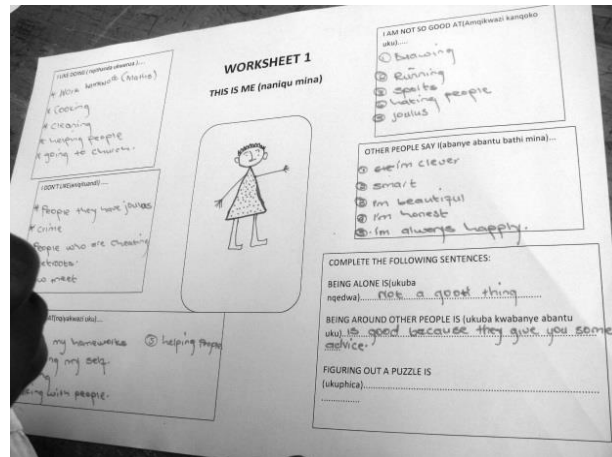 WORKSHEET 1
THIS IS ME (naniqu mina)
I LIKE DOING
* Work homework (Maths)
* Cooking
* cleaning
* helping people
* going to church.
I DON'T LIKE
* People they have joulas
* crime
People who are cheating
meet
my homeworks ⑤ helping People
my self
with people.
I AM NOT SO GOOD AT(Angikwazi kangqoko
uku).....
① Drawing
② Running
③ Sports
④ hating people
⑤ joulus
OTHER PEOPLE SAY I(abanye abantu bathi mina)...
① I'm clever
② smart
③ I'm beautiful
④ I'm honest
⑤ I'm always happly.
COMPLETE THE FOLLOWING SENTENCES:
BEING ALONE IS(ukuba
nqedwa).... Not a good thing
BEING AROUND OTHER PEOPLE IS (ukuba kwabanye abantu
uku) is good because they give you some
advice.
FIGURING OUT A PUZZLE IS
(ukuphica)